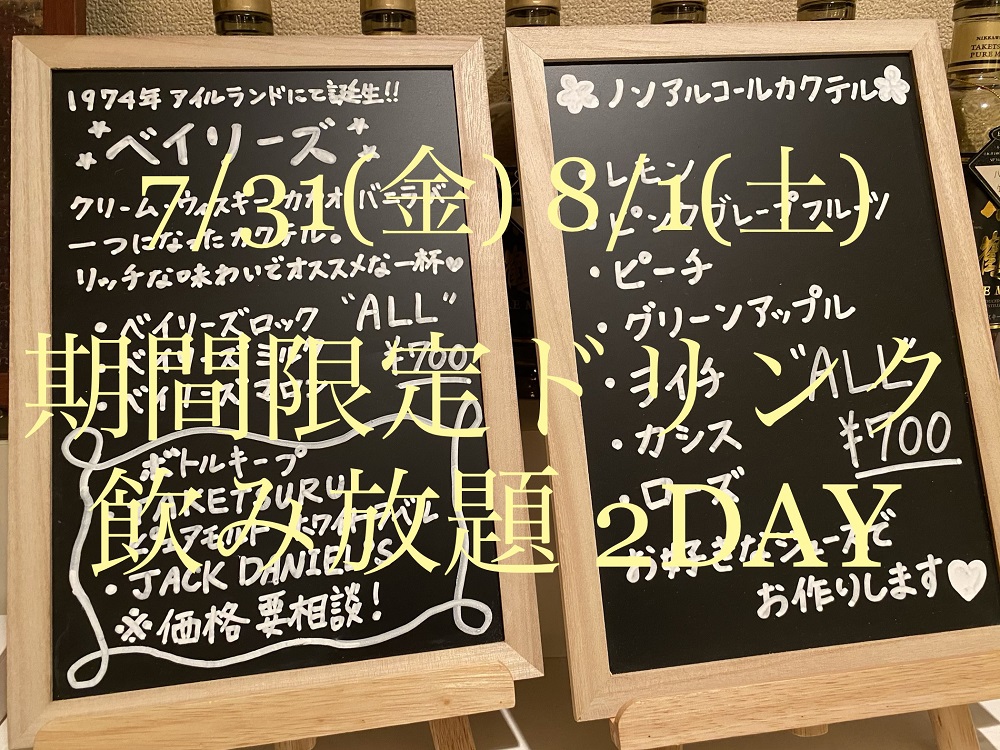 1974年 アイルランドにて誕生!!
ベイリーズ
クリーム・ウィスキー・カカオ・バニラが
一つになったカクテル。
リッチな味わいでオススメな一杯♥
・ベイリーズロック "ALL"
・ベイリーズミルク ¥700
・ベイリーズ
ボトルキープ
TAKETSURU
ピュアモルト ホワイトラベル
・JACK DANIEL'S
※価格要相談!
ノンアルコールカクテル
・レモン
・ピンクグレープフルーツ
・ピーチ
・グリーンアップル
・ヨイチ "ALL"
・カシス ¥700
・ローズ
お好きなジュースで
お作りします♥
7/31(金) 8/1(土)
期間限定ドリンク
飲み放題 2DAY
NIKKA
TAKETS
PURE M